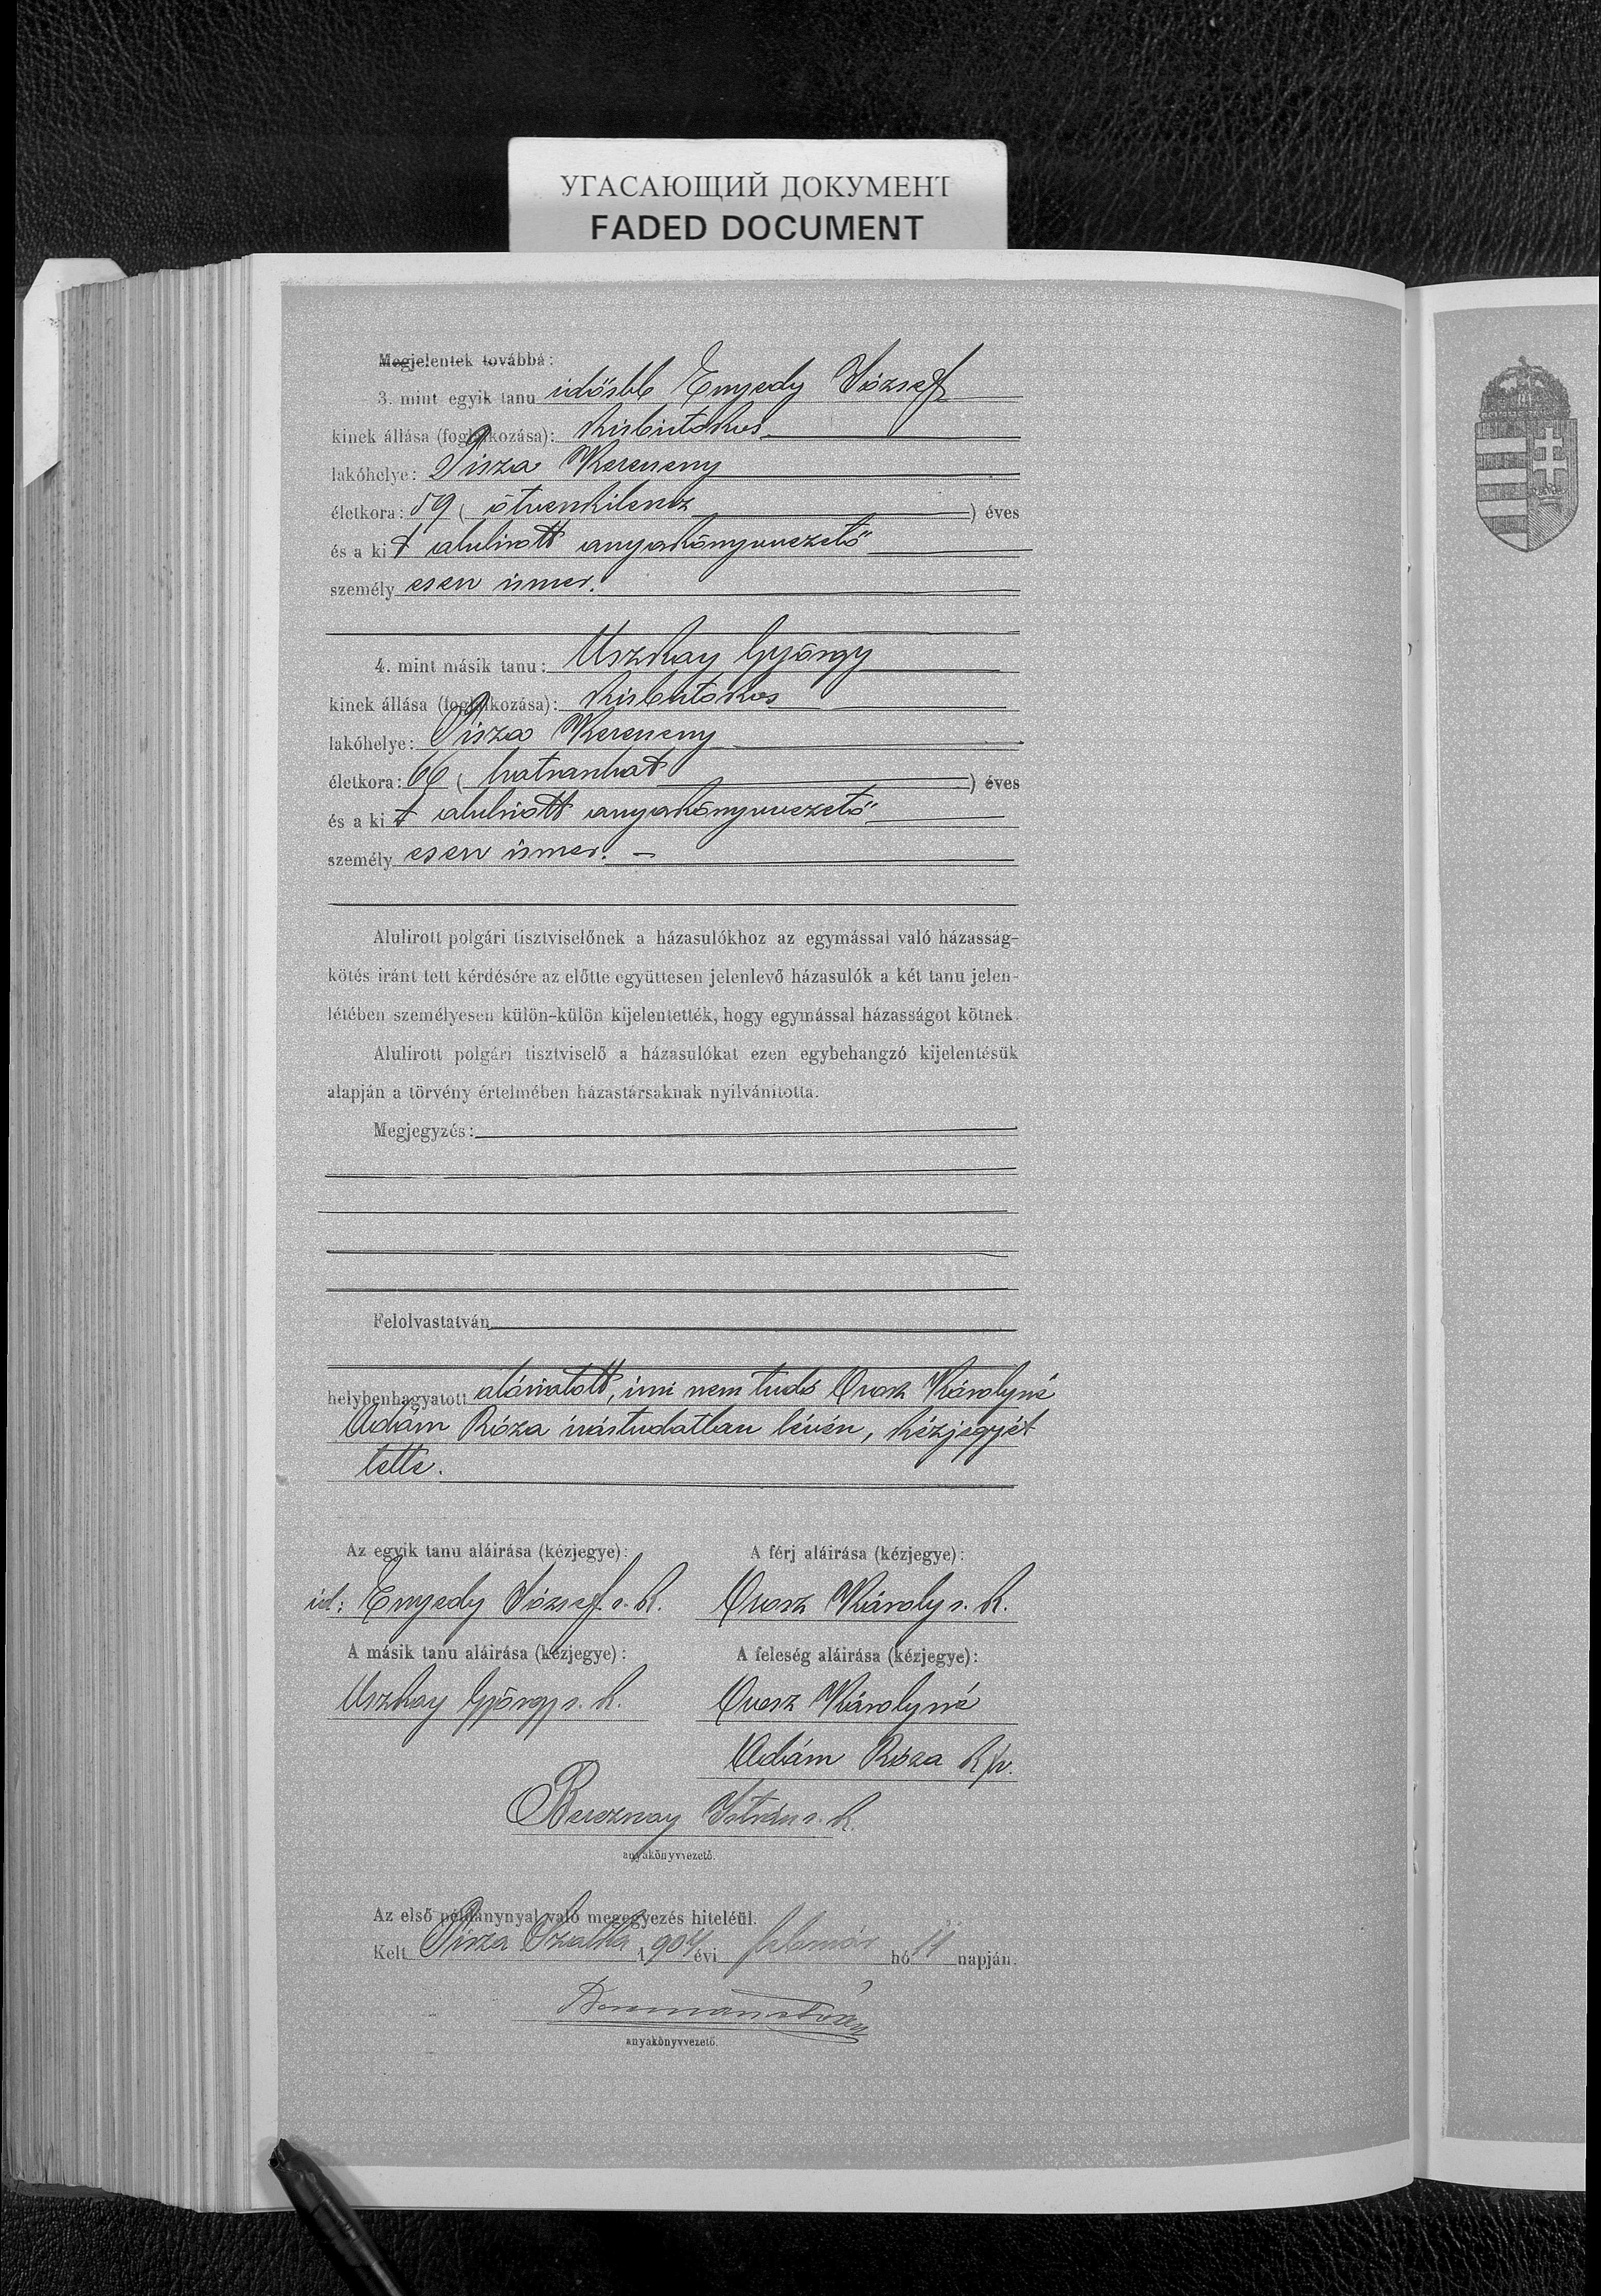 УГАСАЮЩИЙ ДОКУМЕНТ
FADED DOCUMENT
Megjelentek továbbá:
3. mint egyik tanu idősbb Enyedy József
kinek állása (foglalkozása): kisbirtokos
lakóhelye: Tisza Kerecseny
életkora: 59 ( ötvenkilencz ) éves
és a ki t alulirott anyakönyvvezető
személy esen ismer.
4. mint másik tanu: Uszkay György
kinek állása (foglalkozása): kisbirtokos
lakóhelye: Tisza Kerecseny
életkora: 66 ( hatvanhat ) éves
és a ki t alulirott anyakönyvvezető
személy esen ismer. —
Alulirott polgári tisztviselőnek a házasulókhoz az egymással való házasság-
kötés iránt tett kérdésére az előtte együttesen jelenlevő házasulók a két tanu jelen-
létében személyesen külön-külön kijelentették, hogy egymással házasságot kötnek.
Alulirott polgári tisztviselő a házasulókat ezen egybehangzó kijelentésük
alapján a törvény értelmében házastársaknak nyilvánította.
Megjegyzés:
Felolvastatván
helybenhagyatott aláiratott, irni nem tudó Orosz Károlyné
Ádám Róza irástudatlan lévén, kézjegyét
tette.
Az egyik tanu aláirása (kézjegye): A férj aláirása (kézjegye):
id: Enyedy József s. k. Orosz Károly s. k.
A másik tanu aláirása (kézjegye): A feleség aláirása (kézjegye):
Uszkay György s. k. Orosz Károlyné
Ádám Róza k x v.
István s. k.
anyakönyvvezető.
Az első példánynyal való megegyezés hiteléül.
Kelt Tisza Szalka 1904 évi február hó 11 napján.
anyakönyvvezető.